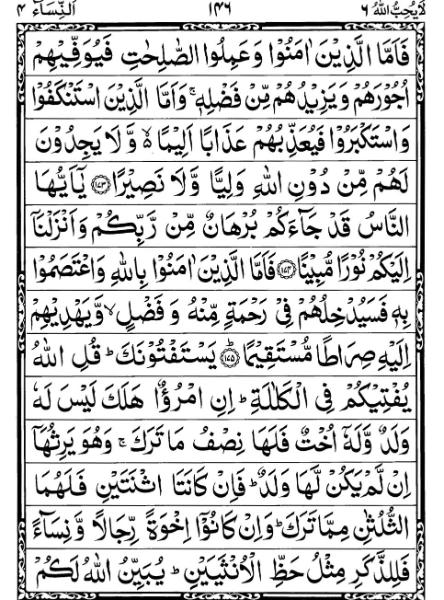 لَا يُحِبُّ اللهُ ٦ ١٤٦ اَلنِّسَآء ٤
فَاَمَّا الَّذِيْنَ اٰمَنُوْا وَعَمِلُوا الصّٰلِحٰتِ فَيُوَفِّيْهِمْ
اُجُوْرَهُمْ وَيَزِيْدُهُمْ مِّنْ فَضْلِهٖ ۚ وَاَمَّا الَّذِيْنَ اسْتَنْكَفُوْا
وَاسْتَكْبَرُوْا فَيُعَذِّبُهُمْ عَذَابًا اَلِيْمًا ۙ وَّلَا يَجِدُوْنَ
لَهُمْ مِّنْ دُوْنِ اللهِ وَلِيًّا وَّلَا نَصِيْرًا ﴿١٧٣﴾ يٰۤاَيُّهَا
النَّاسُ قَدْ جَآءَكُمْ بُرْهَانٌ مِّنْ رَّبِّكُمْ وَاَنْزَلْنَاۤ
اِلَيْكُمْ نُوْرًا مُّبِيْنًا ﴿١٧٤﴾ فَاَمَّا الَّذِيْنَ اٰمَنُوْا بِاللهِ وَاعْتَصَمُوْا
بِهٖ فَسَيُدْخِلُهُمْ فِيْ رَحْمَةٍ مِّنْهُ وَفَضْلٍ ۙ وَّيَهْدِيْهِمْ
اِلَيْهِ صِرَاطًا مُّسْتَقِيْمًا ﴿١٧٥﴾ يَسْتَفْتُوْنَكَ ؕ قُلِ اللهُ
يُفْتِيْكُمْ فِي الْكَلٰلَةِ ؕ اِنِ امْرُؤٌا هَلَكَ لَيْسَ لَهٗ
وَلَدٌ وَّلَهٗۤ اُخْتٌ فَلَهَا نِصْفُ مَا تَرَكَ ۚ وَهُوَ يَرِثُهَاۤ
اِنْ لَّمْ يَكُنْ لَّهَا وَلَدٌ ؕ فَاِنْ كَانَتَا اثْنَتَيْنِ فَلَهُمَا
الثُّلُثٰنِ مِمَّا تَرَكَ ؕ وَاِنْ كَانُوْۤا اِخْوَةً رِّجَالًا وَّنِسَآءً
فَلِلذَّكَرِ مِثْلُ حَظِّ الْاُنْثَيَيْنِ ؕ يُبَيِّنُ اللهُ لَكُمْ